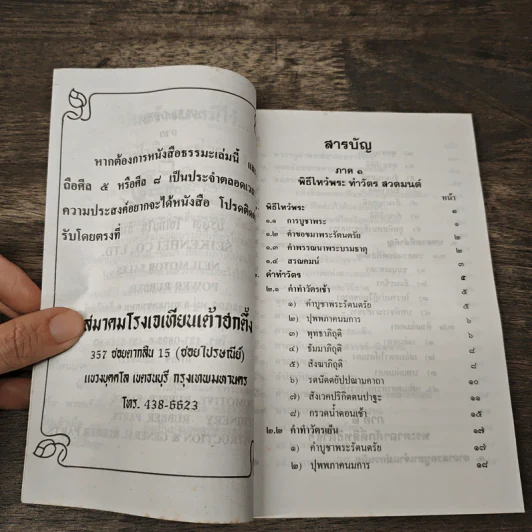 หากต้องการหนังสือธรรมะเล่มนี้
ถือศีล ๕ หรือศีล ๘ เป็นประจำตลอดเวลา
ความประสงค์อยากจะได้หนังสือ โปรดติดต่อ
รับโดยตรงที่
สมาคมโรงเจเทียนเต้าฮกตั๊ง
357 ซอยตากสิน 15 (ซอยไปรษณีย์)
แขวงบุคคโล เขตธนบุรี กรุงเทพมหานคร
โทร. 438-6623
สารบัญ
ภาค ๑
พิธีไหว้พระ ทำวัตร สวดมนต์
หน้า
พิธีไหว้พระ ๑
๑.๑ การบูชาพระ
๑.๒ คำขอขมาพระรัตนตรัย
๑.๓ คำพรรณนาพระบรมธาตุ
๑.๔ สรณคมน์
คำทำวัตร
๒.๑ คำทำวัตรเช้า
๑) คำบูชาพระรัตนตรัย
๒) ปุพพภาคนมการ
๓) พุทธาภิถุติ
๔) ธัมมาภิถุติ
๕) สังฆาภิถุติ
๖) รตนัตตยัปปณามคาถา ๑๐
๗) สังเวคปริกิตตนปาฐะ
๘) กรวดน้ำตอนเช้า ๑๕
๒.๒ คำทำวัตรเย็น ๑๗
๑) คำบูชาพระรัตนตรัย ๑๗
๒) ปุพพภาคนมการ ๑๘